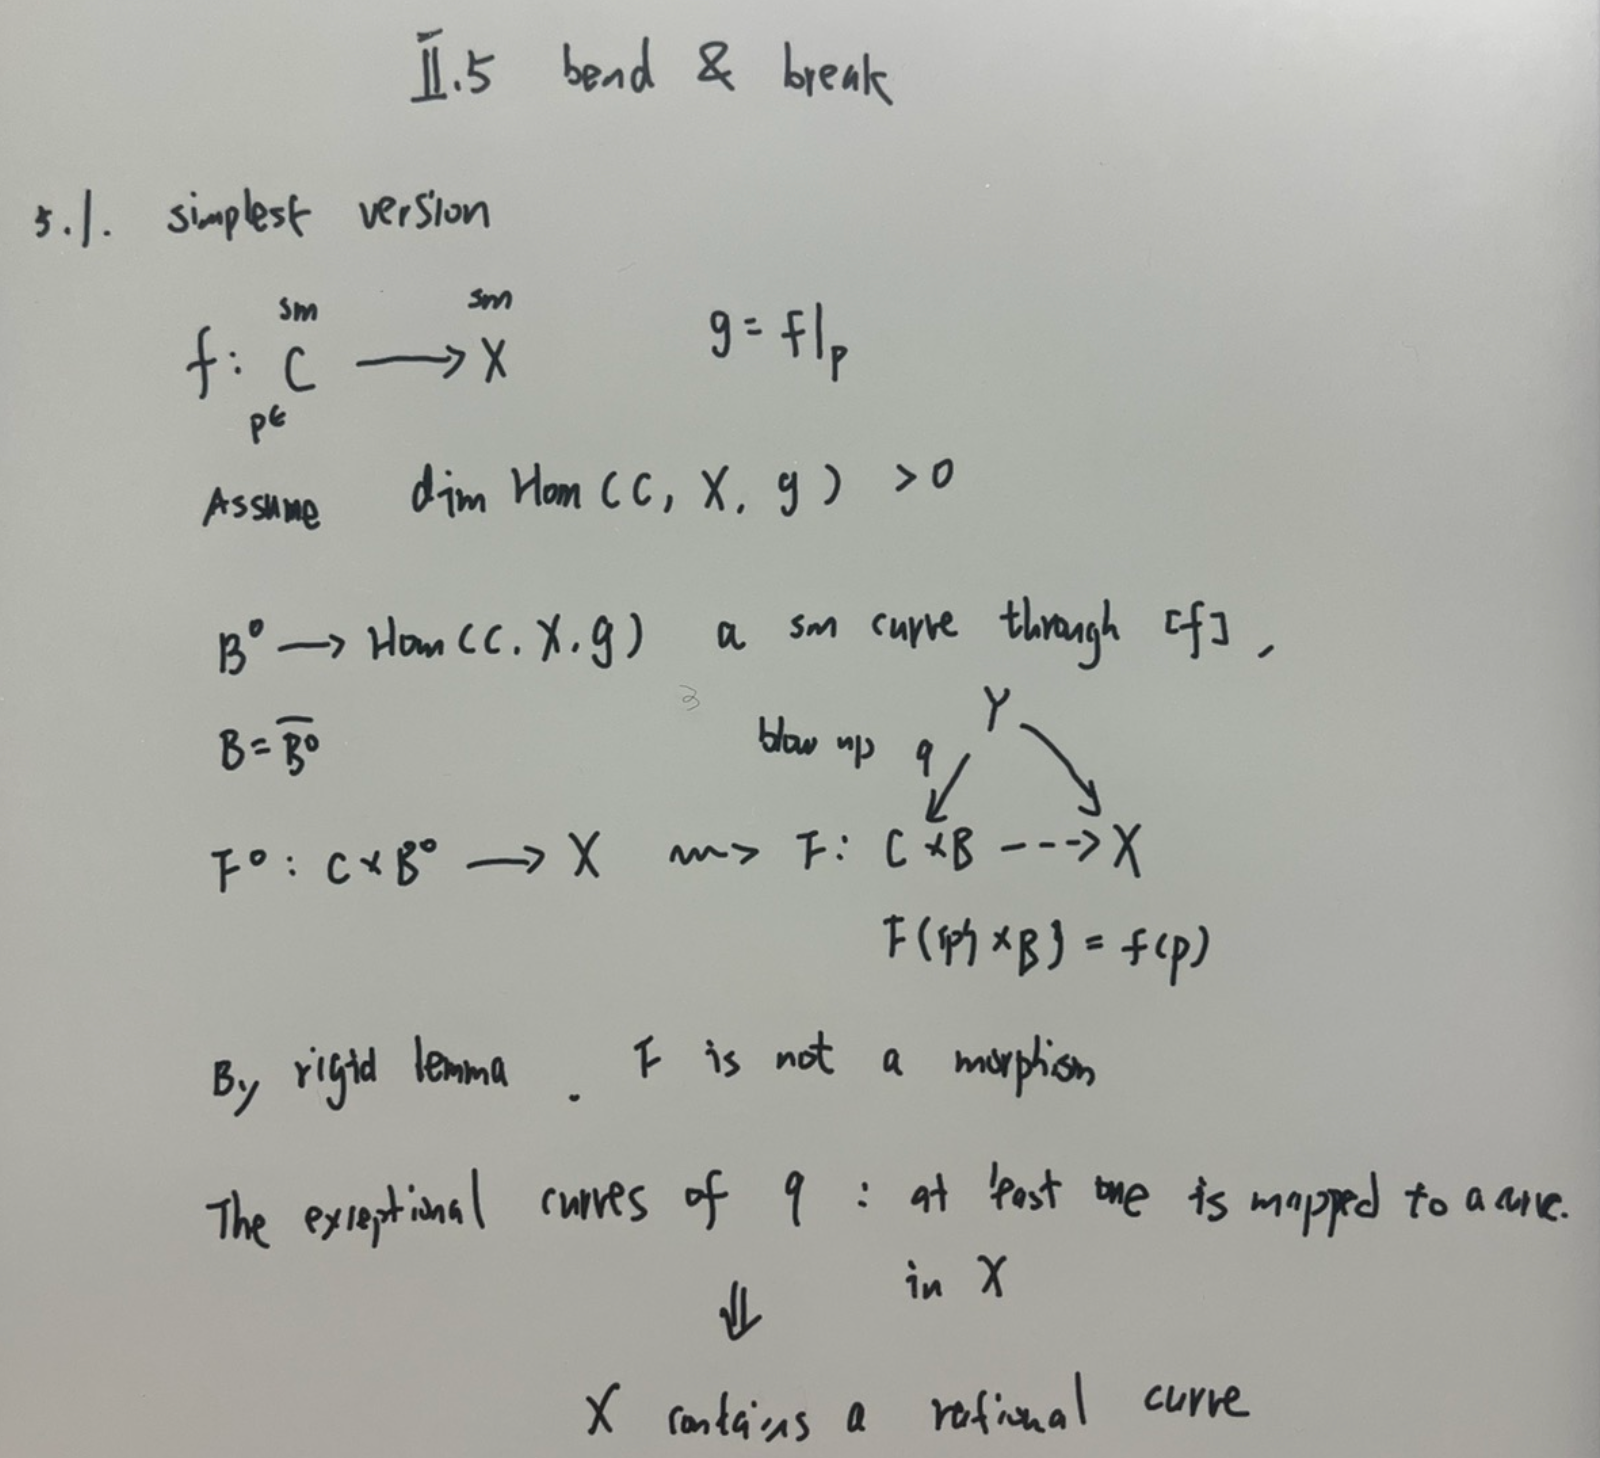 II.5 bend & break
5.1. simplest version
sm sm
f: C ⟶ X g = f|p
p∈
Assume dim Hom (C, X, g) > 0
B° ⟶ Hom (C, X, g) a sm curve through [f],
B = \overline{B°} blow up q Y
F°: C × B° ⟶ X ⇝ F: C × B ⇢ X
F({p} × B) = f(p)
By rigid lemma. F is not a morphism
The exceptional curves of q : at least one is mapped to a curve.
⇓ in X
X contains a rational curve